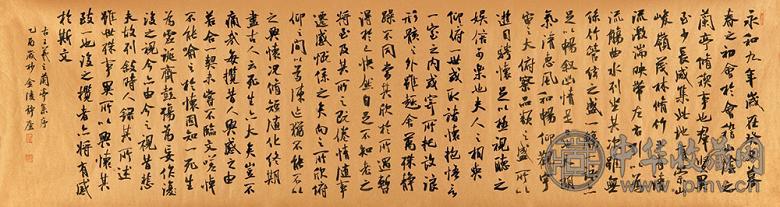 永和九年歲在癸丑暮
春之初會於會稽山陰之
蘭亭脩禊事也群賢畢
至少長咸集此地有崇山
峻嶺茂林脩竹又有清
流激湍映帶左右引以為
流觴曲水列坐其次雖無
絲竹管絃之盛一觴一詠亦
足以暢敘幽情是日也天朗
氣清惠風和暢仰觀宇
宙之大俯察品類之盛所以
遊目騁懷足以極視聽之
娛信可樂也夫人之相與
俯仰一世或取諸懷抱悟言
一室之內或因寄所託放浪
形骸之外雖趣舍萬殊靜
躁不同當其欣於所遇暫
得於己快然自足不知老之
將至及其所之既倦情隨事
遷感慨係之矣向之所欣俯
仰之間以為陳迹猶不能不以
之興懷況脩短隨化終期
於盡古人云死生亦大矣豈不
痛哉每攬昔人興感之由
若合一契未嘗不臨文嗟悼
不能喻之於懷固知一死生
為虛誕齊彭殤為妄作後
之視今亦由今之視昔悲
夫故列敘時人錄其所述
雖世殊事異所以興懷其
致一也後之攬者亦將有感
於斯文
右王羲之蘭亭集序
中华收藏网